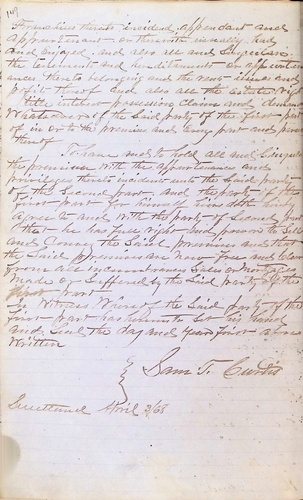 148
thereto incident, appendant and
appurtenant or therewith usually had
and enjoyed and also all and Singular
the tenements and hereditaments or appurten
ances thereto belonging and the rents issues and
profits thereof and also all the estate right
title interest possession claim and demand
Whatsoever of the Said party of the first part
of in or to the premises and every part and parcel
thereof
To have and to hold all and Singular
the premises with the appurtenances and
privileges thereto incident unto the Said party
of the Second part and the party of the
first part for himself doth hereby
agree to and with the party of Second part
that he has free right and power to Sell
and Convey the Said premises and that
the Said premises are now free and clear
from all incumbrances Sales or Mortgages
made or Suffered by the Said party of the
first part
In Witness Whereof the Said party of the
first part has hereunto Set his hand
and Seal the day and year first above
Written
Sam T. Curtis
April 2/63